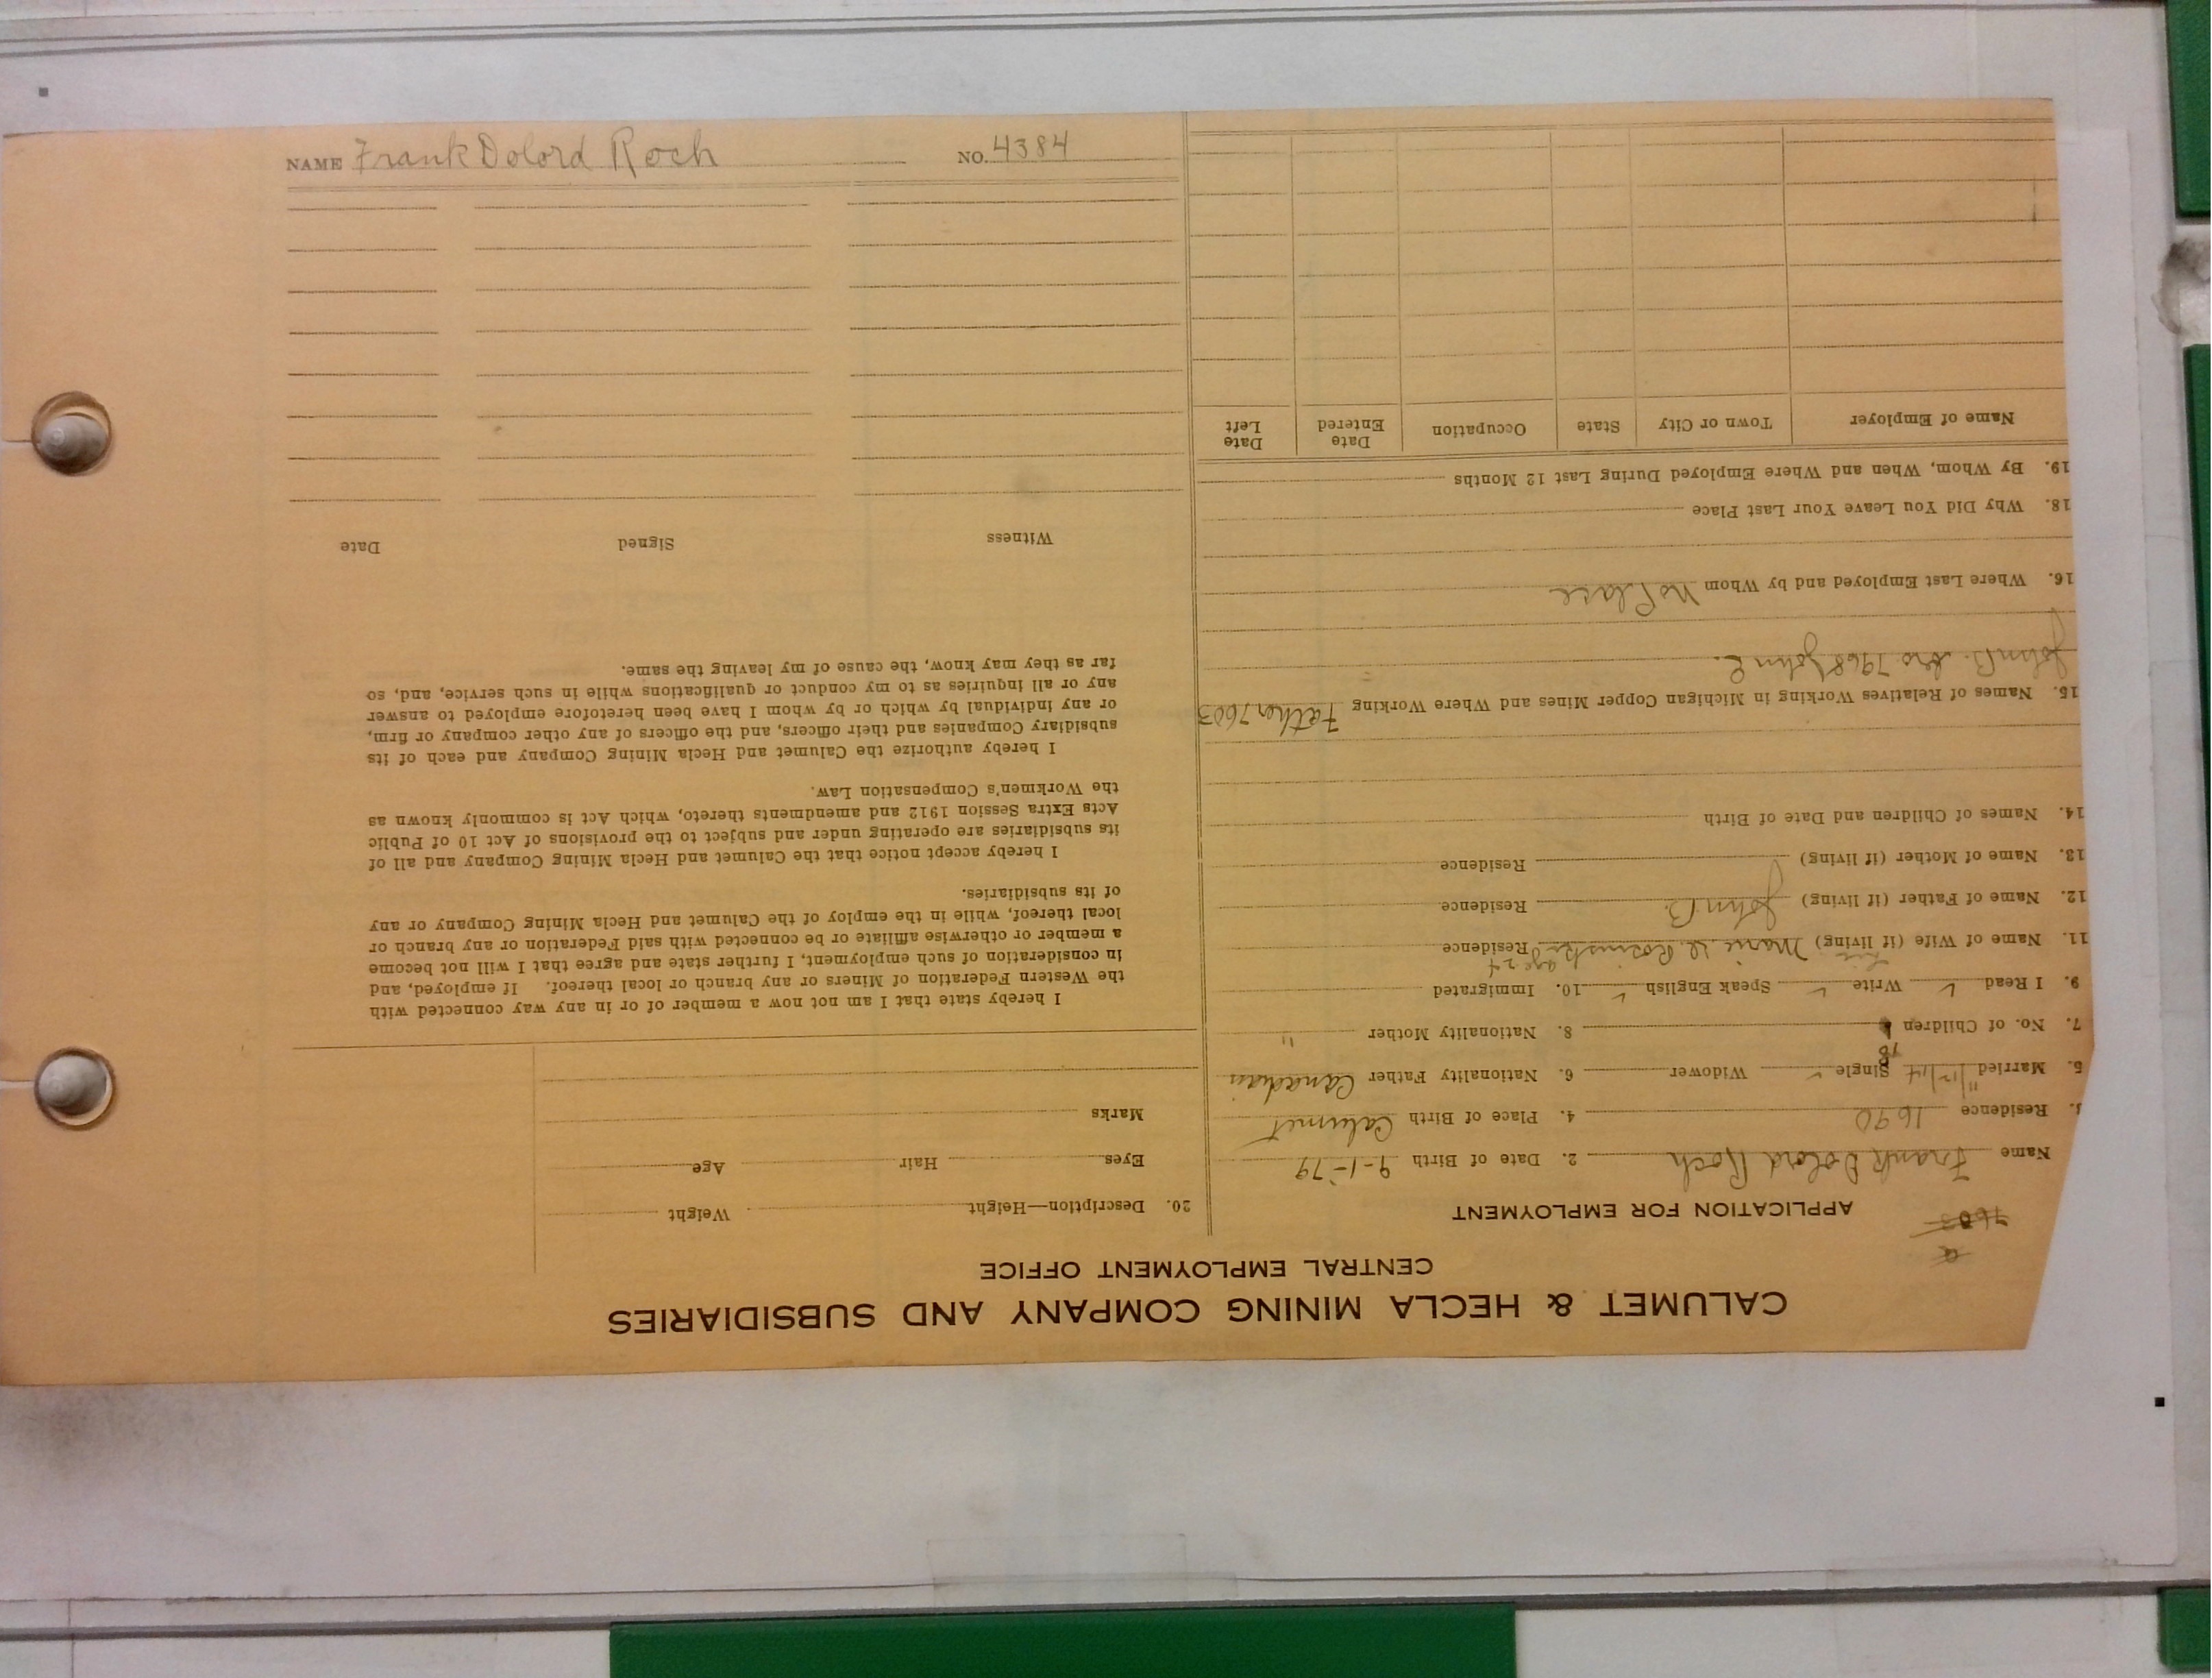 NAME Frank Dolord Roch NO. 4384
CALUMET & HECLA MINING COMPANY AND SUBSIDIARIES
CENTRAL EMPLOYMENT OFFICE
7603
APPLICATION FOR EMPLOYMENT
Name Frank Dolord Roch 2. Date of Birth 9-1-79
Residence 1690 4. Place of Birth Calumet
5. Married Single ✓ Widower 6. Nationality Father Canadian
7. No. of Children 8. Nationality Mother "
9. I Read ✓ Write ✓ Speak English ✓ 10. Immigrated
age 24
11. Name of Wife (if living) Marie Residence
12. Name of Father (if living) John B. Residence
13. Name of Mother (if living) Residence
14. Names of Children and Date of Birth
15. Names of Relatives Working in Michigan Copper Mines and Where Working Father 7603
John B. Bro 7968 John E.
16. Where Last Employed and by Whom No Place
18. Why Did You Leave Your Last Place
19. By Whom, When and Where Employed During Last 12 Months
Name of Employer Town or City State Occupation Date Entered Date Left
20. Description—Height Weight
Eyes Hair Age
Marks
I hereby state that I am not now a member of or in any way connected with
the Western Federation of Miners or any branch or local thereof. If employed, and
in consideration of such employment, I further state and agree that I will not become
a member or otherwise affiliate or be connected with said Federation or any branch or
local thereof, while in the employ of the Calumet and Hecla Mining Company or any
of its subsidiaries.
I hereby accept notice that the Calumet and Hecla Mining Company and all of
its subsidiaries are operating under and subject to the provisions of Act 10 of Public
Acts Extra Session 1912 and amendments thereto, which Act is commonly known as
the Workmen's Compensation Law.
I hereby authorize the Calumet and Hecla Mining Company and each of its
subsidiary Companies and their officers, and the officers of any other company or firm,
or any individual by which or by whom I have been heretofore employed to answer
any or all inquiries as to my conduct or qualifications while in such service, and, so
far as they may know, the cause of my leaving the same.
Witness Signed Date